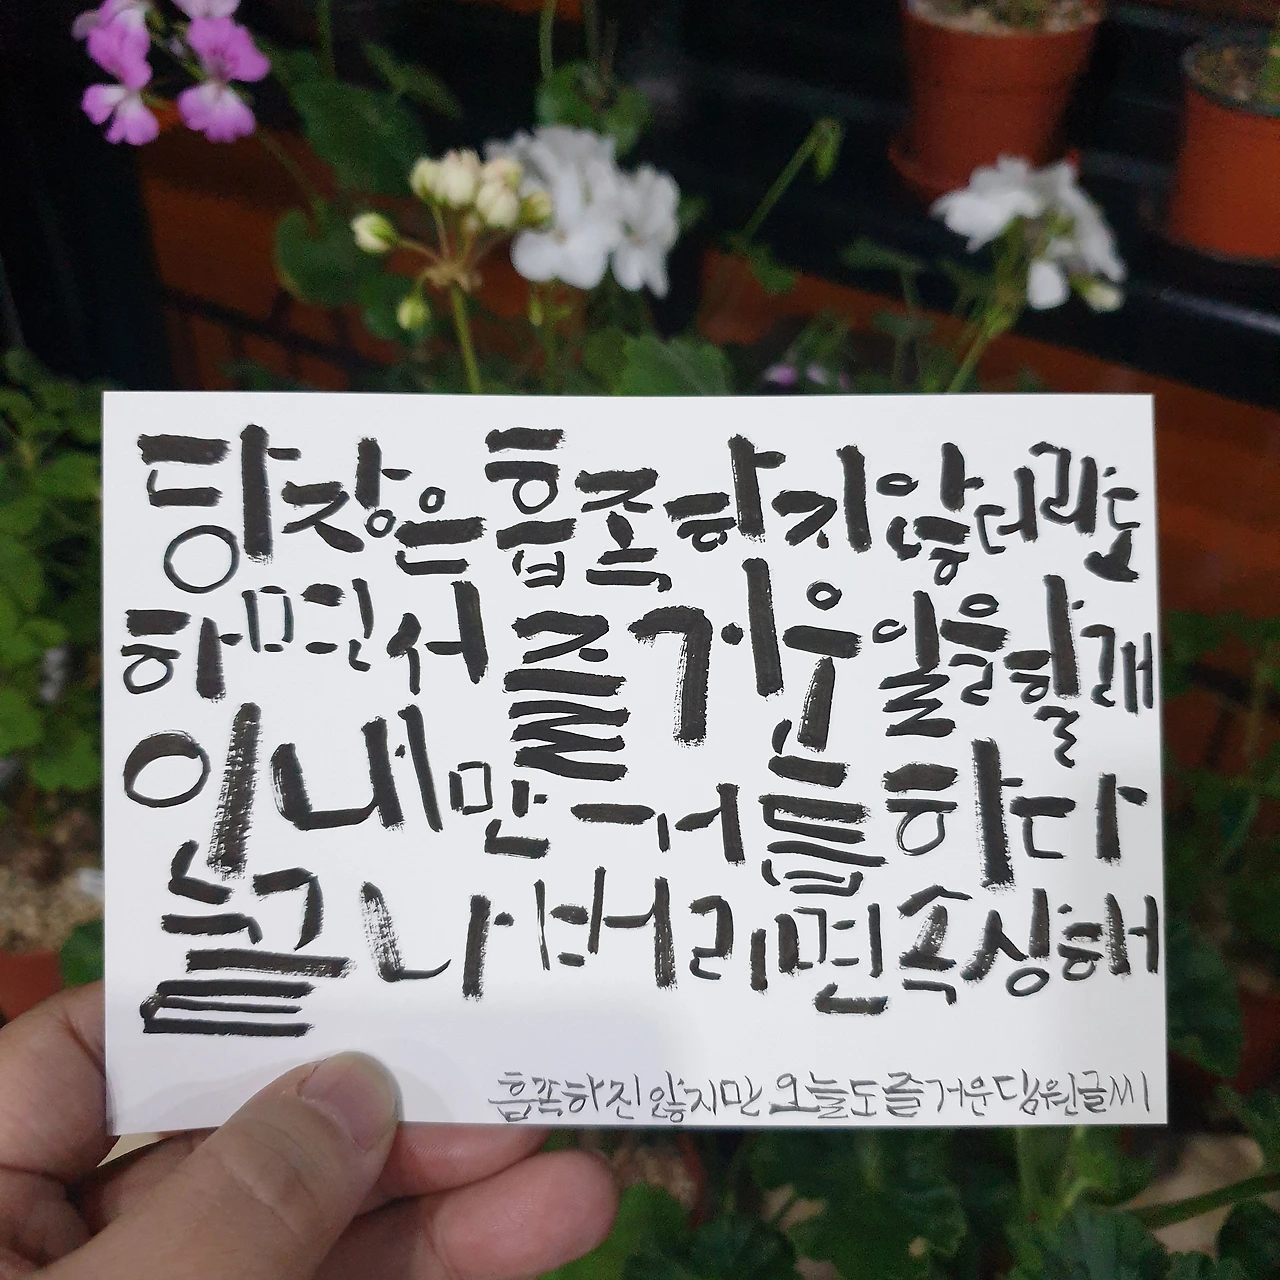 당장은 흡족하지 않더라도
하면서 즐거운 일을 할래
인내만 거듭하다
끝나버리면 속상해
흡족하진 않지만 오늘도 즐거운 딤원글씨